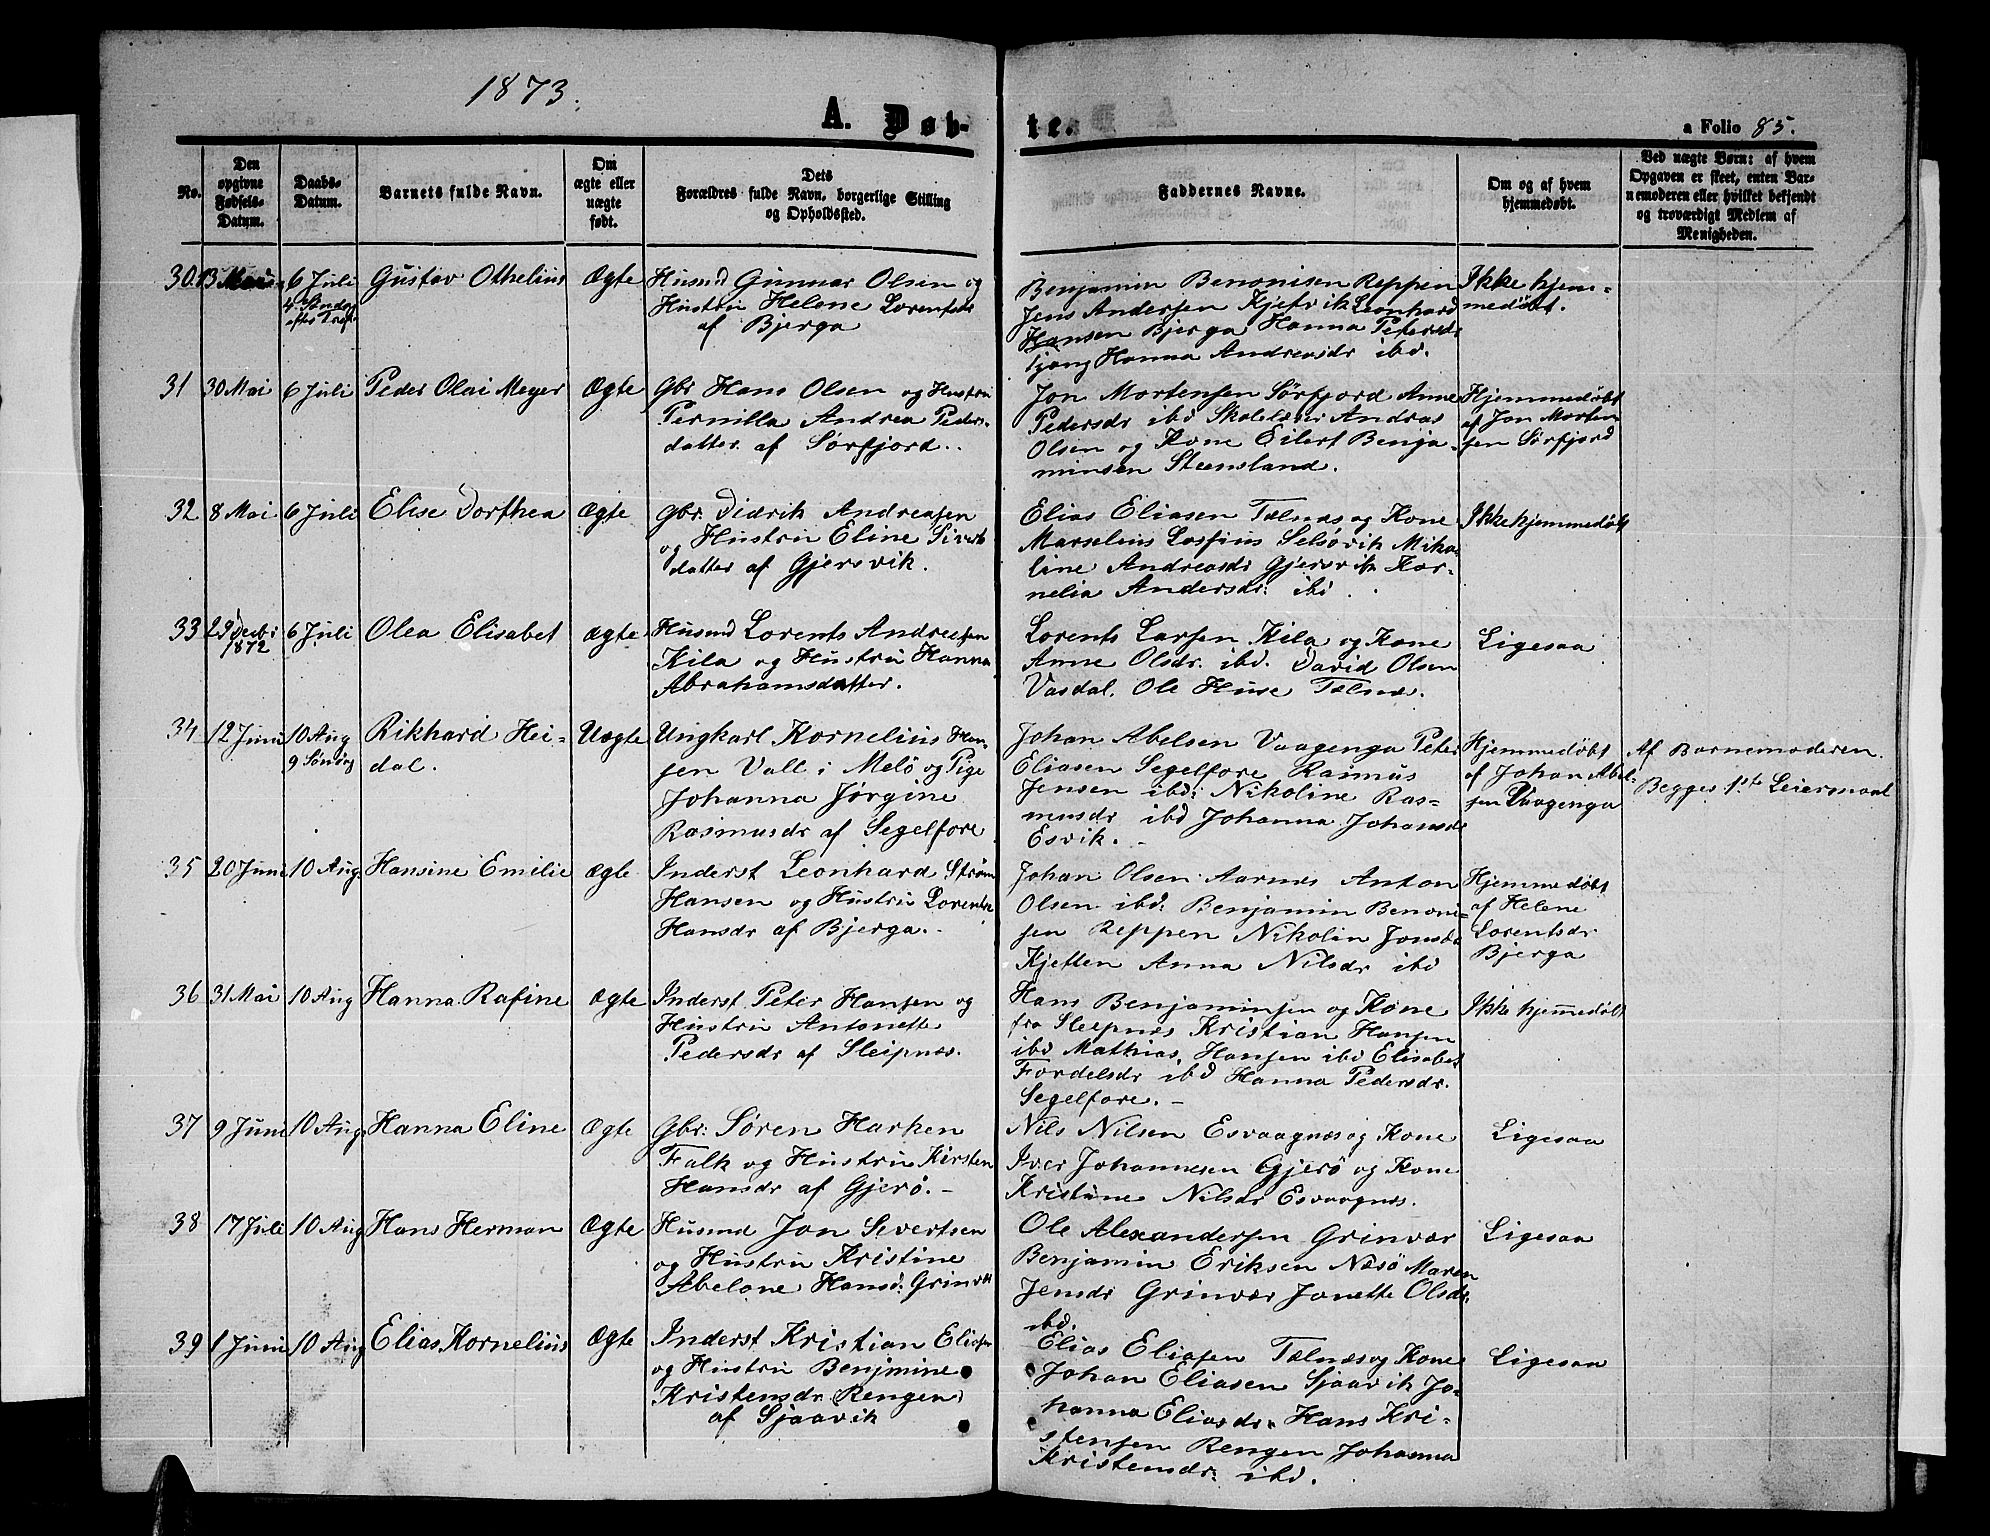 1873.
A. Døb-
te.
a Folio 85.
No.
Den
opgivne
Fødsels-
Datum.
Daabs-
Datum.
Barnets fulde Navn.
Om
ægte eller
uægte
født.
Dets
Forældres fulde Navn, borgerlige Stilling
og Opholdssted.
Faddernes Navne.
Om og af hvem
hjemmedøbt.
Ved uægte Børn: af hvem
Opgaven er skeet, enten Bar-
nemoderen eller hvilket bekjendt
og troværdigt Medlem af
Menigheden.
30. 13 Mai 6 Juli Gustav Othelius Ægte
4. Søndag
efter Tref.
Husmd Gunnar Olsen og
Hustru Helene Lorentsdr
af Bjerga
Benjamin Benonisen Reppen
Jens Andersen Kjefrik Leonhard
Hansen Bjerga Hanna Petersdr
Hanna Andreasdr ibd.
Ikke hjem-
medøbt.
31 30 Mai 6 Juli Peder Olai Meyer Ægte
Gbr Hans Olsen og Hustru
Pernilla Andrea Peders-
datter af Sørfjord.
Jon Mortensen Sørfjord Anne
Pedersdr ibd Skolelærer Andras
Olsen og Kone Eilert Benja-
minsen Steensland.
Hjemmedøbt
af Jon Morten
sen Sørfjord
32 8 Mai 6 Juli Elise Dorthea Ægte
Gbr. Didrik Andreasen
og Hustru Eline Sivert
datter af Gjersvik.
Elias Eliasen Tælnæs og Kone
Marselius Losfius Selsøvik Mika
line Andreasdr Gjersvik Kor-
nelia Andersdr. ibd.
Ikke hjemmedøbt
33 29 Decbr 6 Juli Olea Elisabet Ægte
1872
Husmd Lorents Andreasen
Kila og Hustru Hanna
Abrahamsdatter.
Lorents Larsen Kila og Kone
Anne Olsdr. ibd. David Olsen
Vasdal. Ole Huse Tælnæs.
Ligesaa
34 12 Juni 10 Aug Rikhard Hei- Uægte
9 Søndag dal.
Ungkarl Kornelius Han-
sen Vall i Melø og Pige
Johanna Jørgine
Rasmusdr af Segelfore
Johan Abelsen Vaagenga Peter
Eliasen Segelfore Rasmus
Jensen ibd. Nikoline Ras-
musdr ibd Johanna Johansdr
Esvik.
Hjemmedøbt
af Johan Abel-
sen Vaagenga
Af Barnemoderen.
Begges 1ste Leiermaal
35 20 Juni 10 Aug. Hansine Emilie Ægte
Inderst Leonhard Strøm
Hansen og Hustru Lorentse
Hansdr af Bjerga.
Johan Olsen Aarnes Anton
Olsen ibd. Benjamin Benoni-
sen Reppen Nikolin Jonsda
Kjetten Anna Nilsdr ibd
Hjemmedøbt
af Helene
Lorentsdr.
Bjerga
36 31 Mai 10 Aug Hanna Rafine Ægte
Inderst Peter Hansen og
Hustru Antonette
Pedersdr af Sleipnæs.
Hans Benjaminsen og Kone
fra Sleipnæs Kristian Hansen
ibd Mathias Hansen ibd Elisabet
Fordelsdr ibd Hanna Pedersdr.
Segelfore.
Ikke hjemmedøbt
37 9 Juni 10 Aug. Hanna Eline Ægte
Gbr. Søren Harken
Falk og Hustru Kirsten
Hansdr af Gjerø.
Nils Nilsen Esvaagnæs og Kone
Iver Johannesen Gjerø og Kone
Kristine Nilsdr Esvaagnæs.
Ligesaa
38 17 Juli 10 Aug Hans Herman Ægte
Husmd Jon Sivertsen
og Hustru Kristine
Abelone Hansd. Grinvær
Ole Alexandersen Grinvær
Benjamin Eriksen Næsø Maren
Jensdr Grinvær Jonette Olsdr.
ibd.
Ligesaa
39 1 Juni 10 Aug Elias Kornelius Ægte
Inderst Kristian Eliasen
og Hustru Benjmine
Kristensdr (Rengen)
af Sjaavik
Elias Eliasen Tælnæs og Kone
Johan Eliasen Sjaavik Jo-
hanna Eliasdr. Hans Kri-
stensen Rengen Johanna
Kristensdr. ibd.
Ligesaa